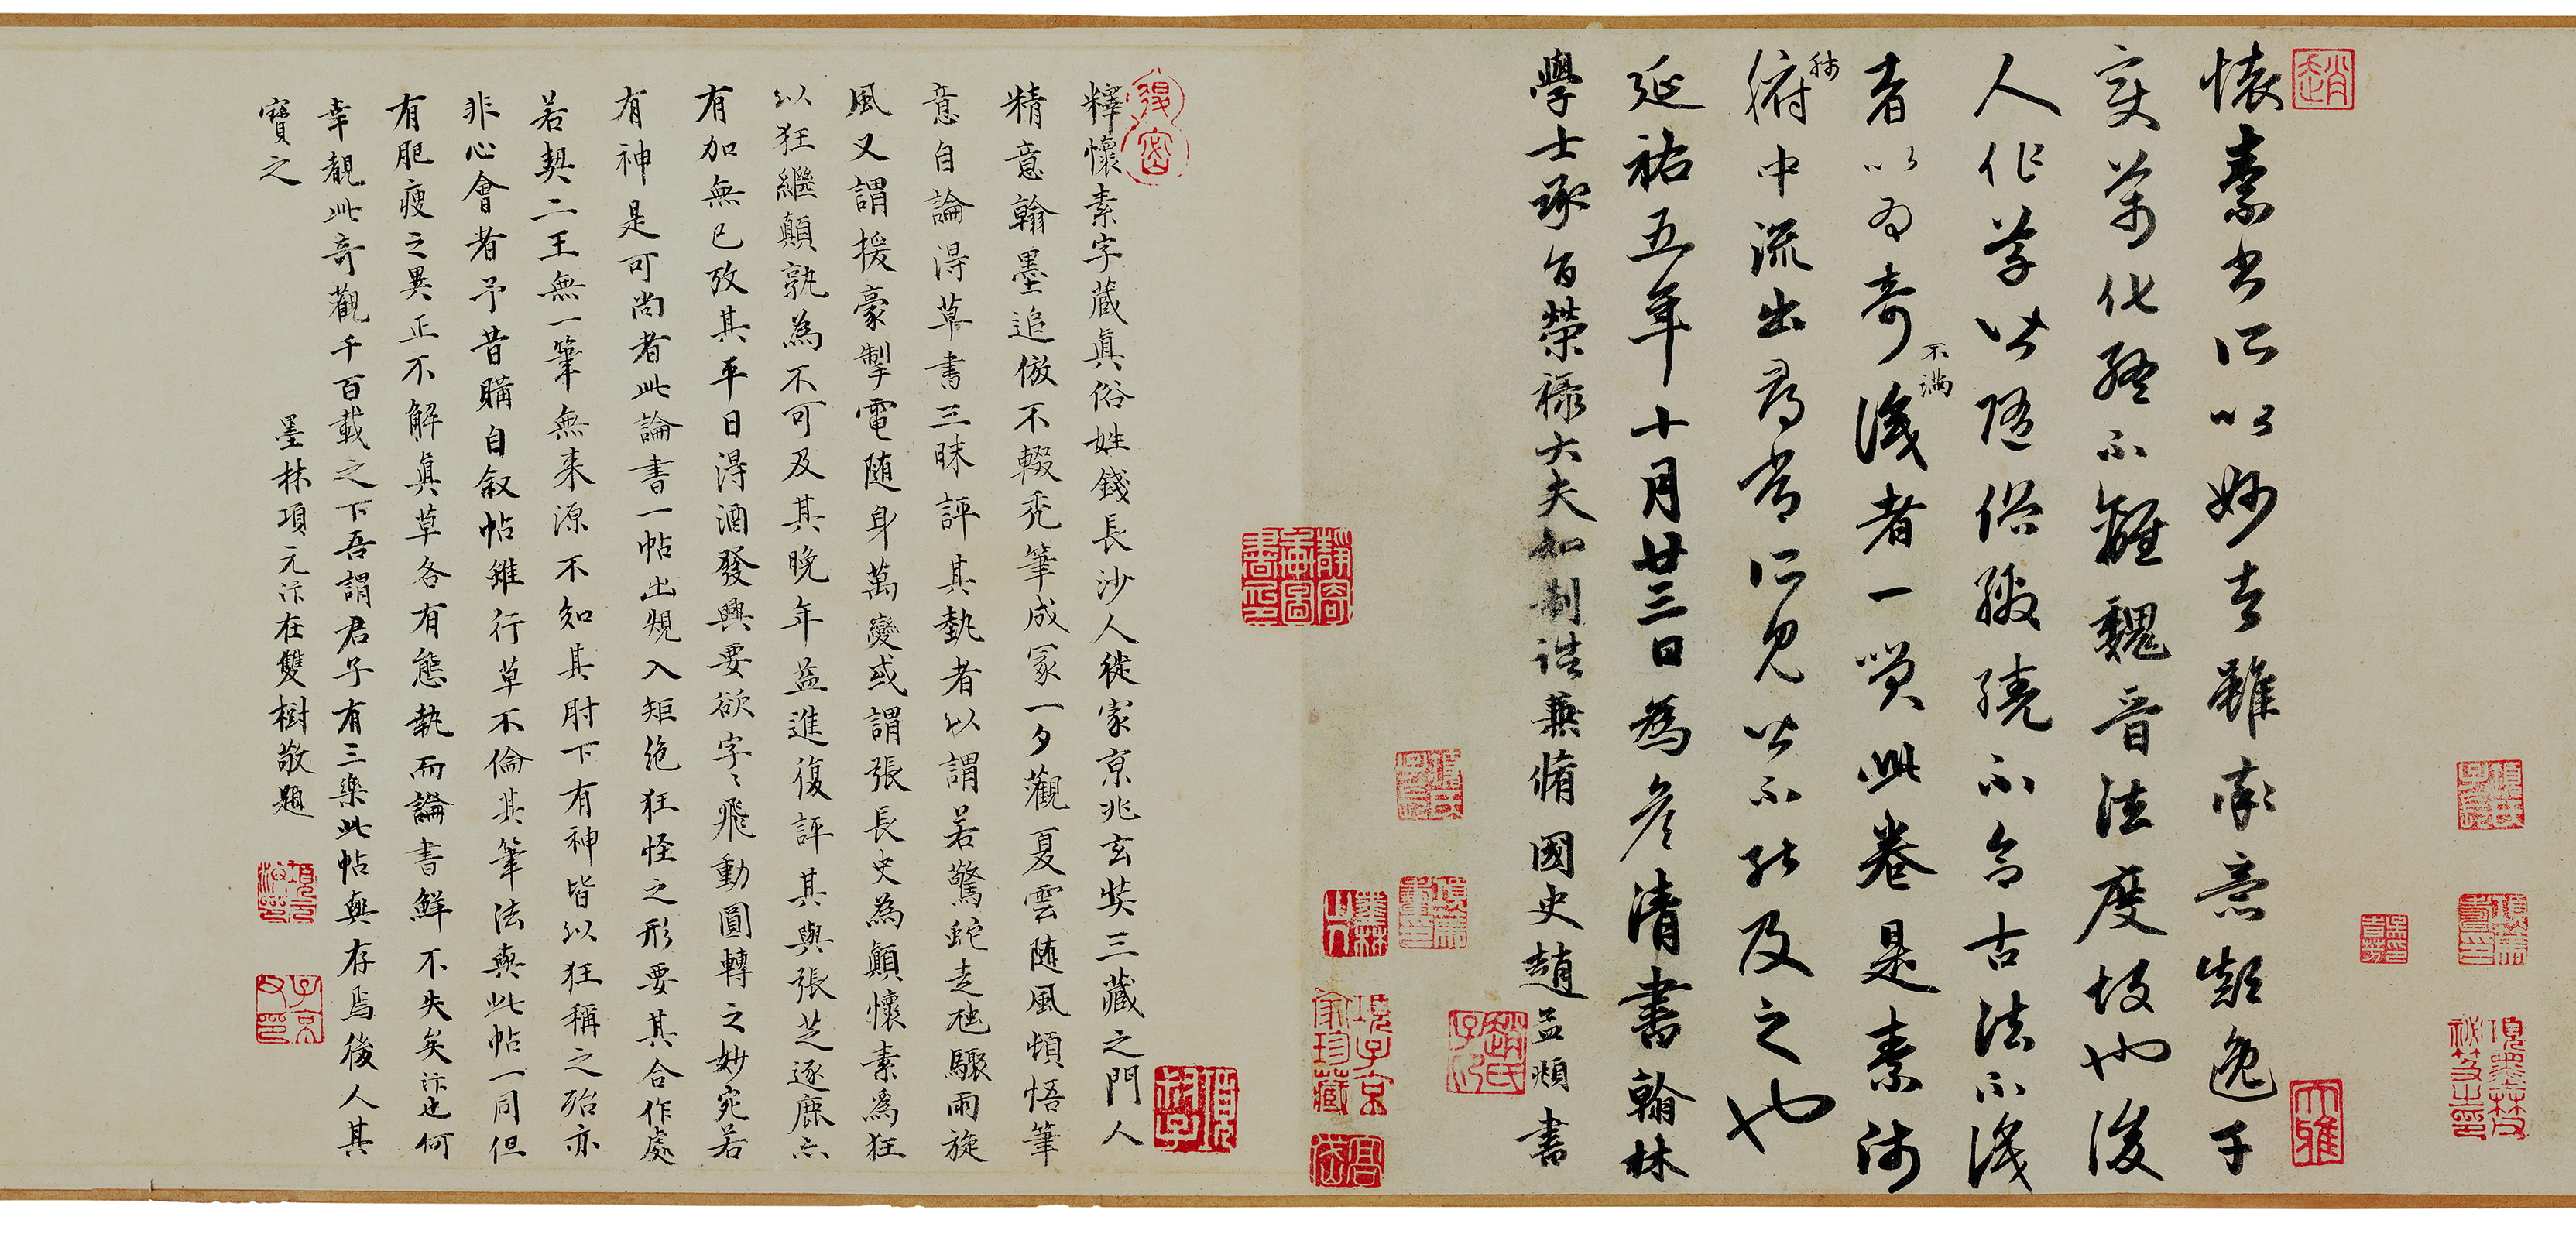 懷素書所以妙者雖率意顛逸千
變萬化終不離魏晉法度故也後
人作草皆隨俗繳繞不合古法不識
者以為奇
不滿
識者一笑此卷是素師
肺
腑中流出尋常所見皆不能及之也
延祐五年十月廿三日為彥清書翰林
學士承旨榮祿大夫知制誥兼脩國史趙孟頫書
釋懷素字藏真俗姓錢長沙人徙家京兆玄奘三藏之門人
精意翰墨追倣不輟禿筆成冢一夕觀夏雲隨風頓悟筆
意自論得草書三昧評其執者以謂若驚蛇走虺驟雨旋
風又謂援豪掣電隨身萬變或謂張長史為顛懷素為狂
以狂繼顛孰為不可及其晚年益進復評其與張芝逐鹿亦
有加無已攷其平日得酒發興要欲字〻飛動圓轉之妙宛若
有神是可尚者此論書一帖出規入矩絕狂怪之形要其合作處
若契二王無一筆無來源不知其肘下有神皆以狂稱之殆亦
非心會者予昔購自叙帖雖行草不倫其筆法與此帖一同但
有肥瘦之異正不解真草各有態執而論書鮮不失矣汴也何
幸覩此奇觀千百載之下吾謂君子有三樂此帖與存焉後人其
寶之
墨林項元汴在雙樹敬題
趙
大雅
項元汴印
子京父印